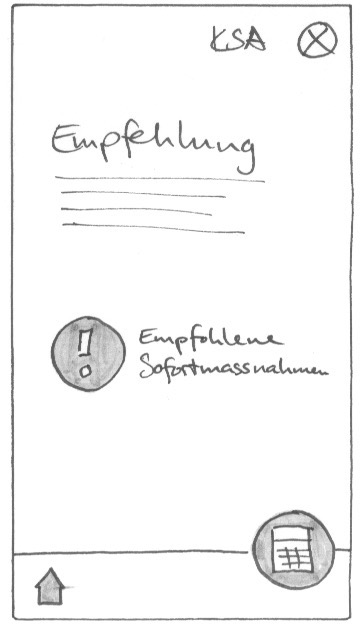 KSA
Empfehlung
Empfohlene
Sofortmassnahmen